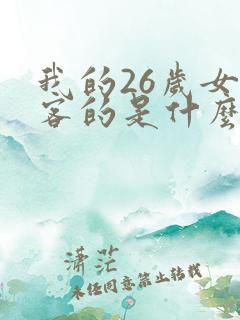 我的26歲女
客的是什麼
瀟茫
未经同意禁止转载